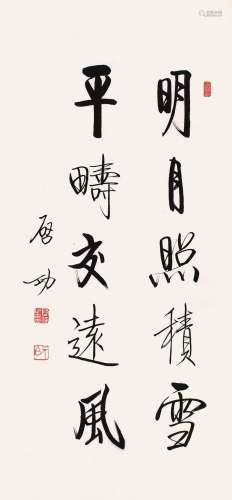 明月照積雪
平疇交遠風
启功